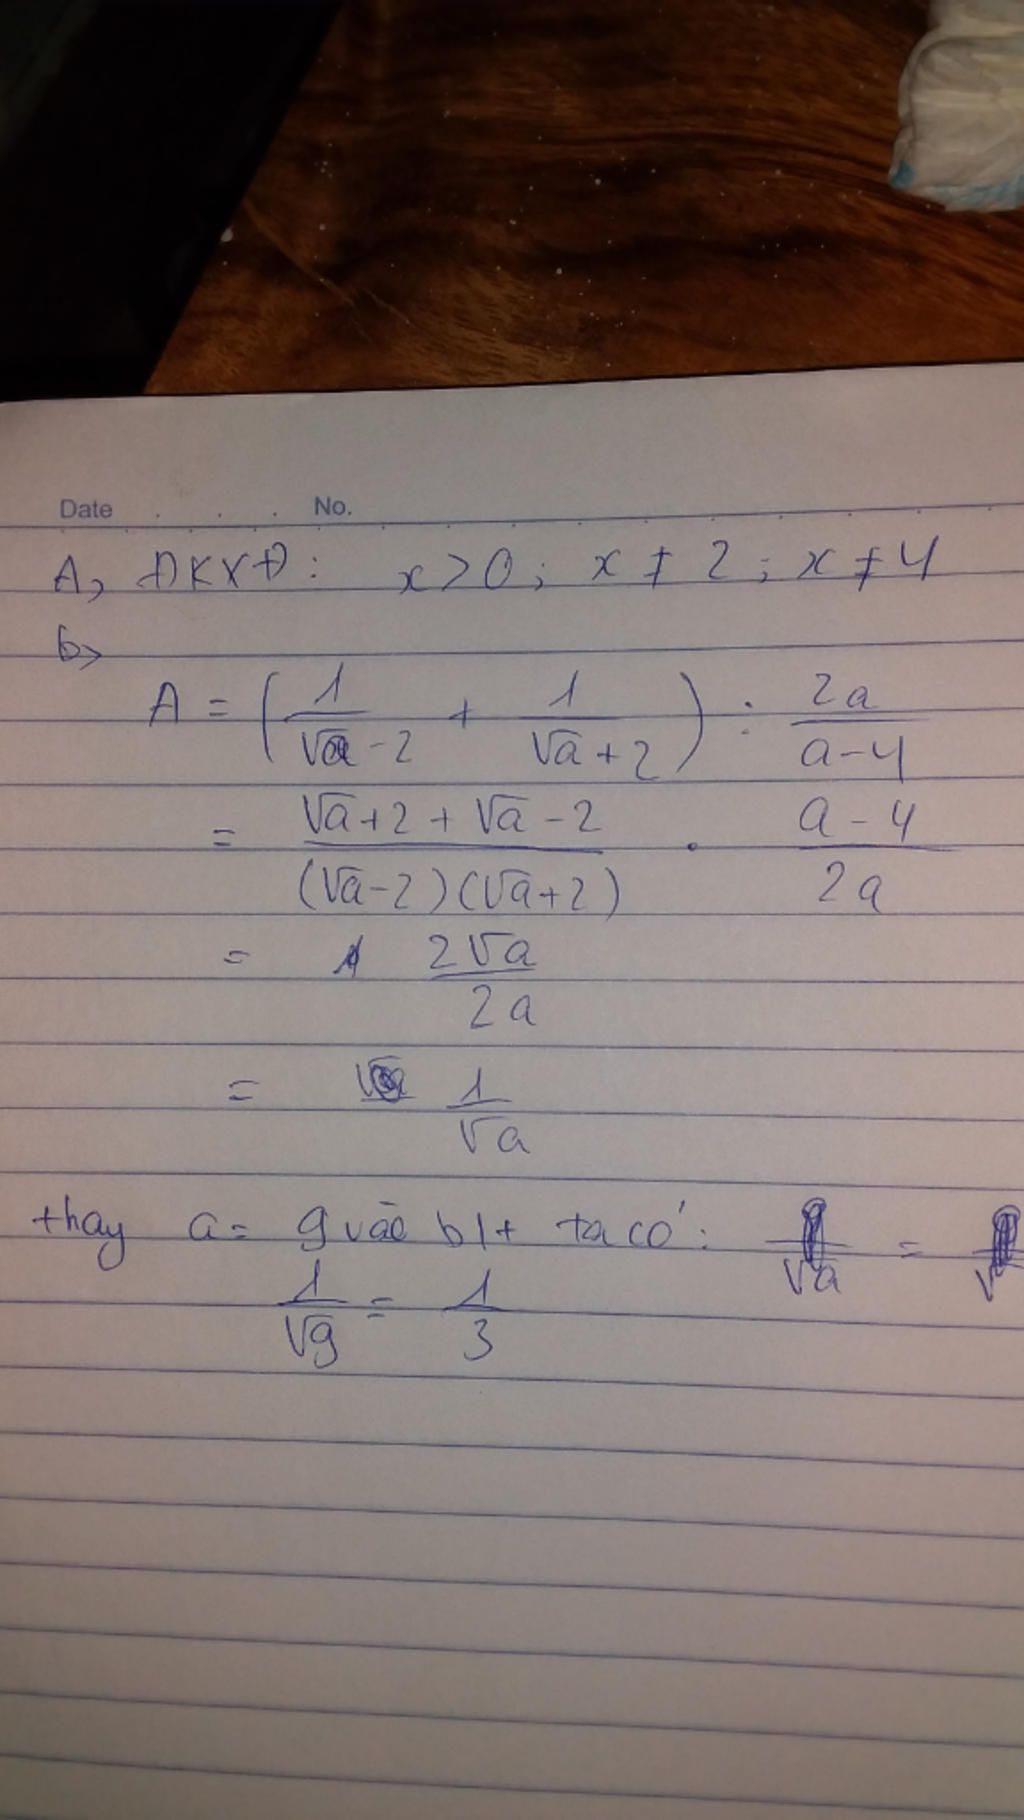 Date . . . No.
A, ĐKXĐ: x>0; x ≠ 2; x ≠ 4
b>
A = (1/(√a - 2) + 1/(√a + 2)) : 2a/(a-4)
= (√a+2 + √a-2)/((√a-2)(√a+2)) . (a-4)/2a
= 2√a/2a
= 1/√a
thay a= 9 vào b/t ta có:
1/√9 = 1/3